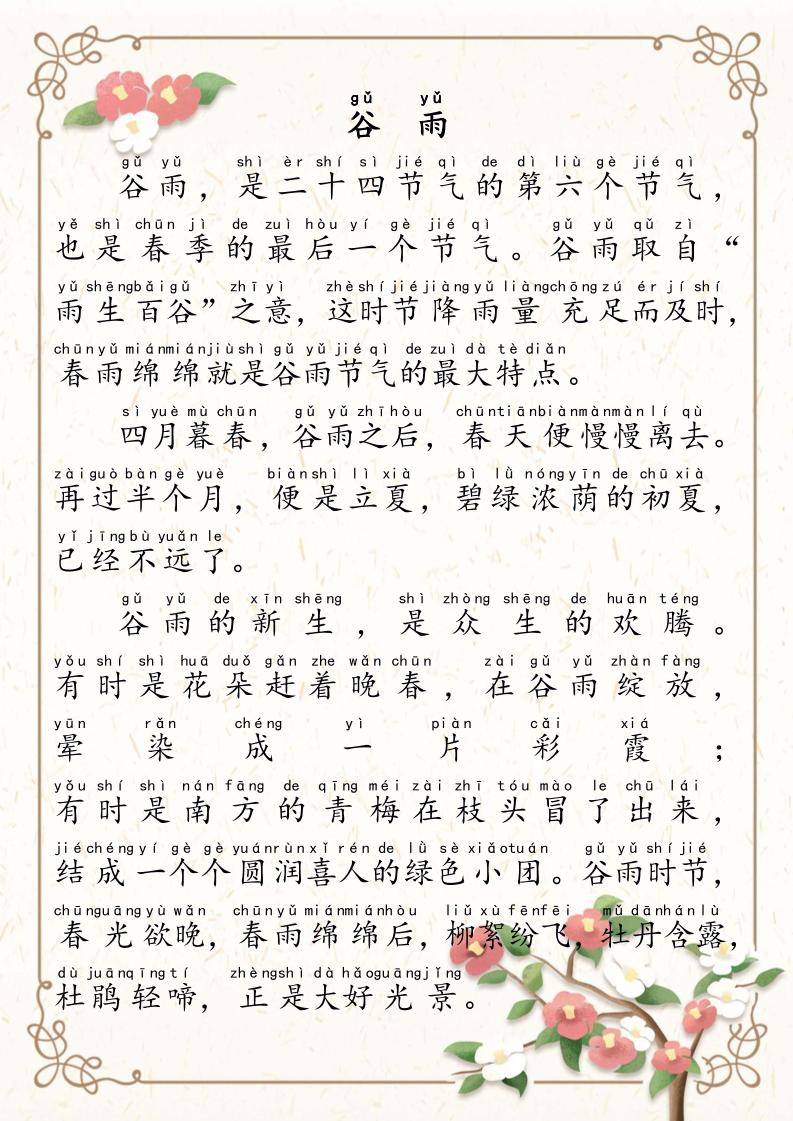 gǔ yǔ
谷 雨
gǔ yǔ shì èr shí sì jié qì de dì liù gè jié qì
谷雨，是二十四节气的第六个节气，
yě shì chūn jì de zuì hòu yí gè jié qì gǔ yǔ qǔ zì
也是春季的最后一个节气。谷雨取自“
yǔ shēng bǎi gǔ zhī yì zhè shí jié jiàng yǔ liàng chōng zú ér jí shí
雨生百谷”之意，这时节降雨量充足而及时，
chūn yǔ mián mián jiù shì gǔ yǔ jié qì de zuì dà tè diǎn
春雨绵绵就是谷雨节气的最大特点。
sì yuè mù chūn gǔ yǔ zhī hòu chūn tiān biàn màn màn lí qù
四月暮春，谷雨之后，春天便慢慢离去。
zài guò bàn gè yuè biàn shì lì xià bì lǜ nóng yīn de chū xià
再过半个月，便是立夏，碧绿浓荫的初夏，
yǐ jīng bù yuǎn le
已经不远了。
gǔ yǔ de xīn shēng shì zhòng shēng de huān téng
谷雨的新生，是众生的欢腾。
yǒu shí shì huā duǒ gǎn zhe wǎn chūn zài gǔ yǔ zhàn fàng
有时是花朵赶着晚春，在谷雨绽放，
yūn rǎn chéng yì piàn cǎi xiá
晕染成一片彩霞；
yǒu shí shì nán fāng de qīng méi zài zhī tóu mào le chū lái
有时是南方的青梅在枝头冒了出来，
jié chéng yí gè gè yuán rùn xǐ rén de lǜ sè xiǎo tuán gǔ yǔ shí jié
结成一个个圆润喜人的绿色小团。谷雨时节，
chūn guāng yù wǎn chūn yǔ mián mián hòu liǔ xù fēn fēi mǔ dān hán lù
春光欲晚，春雨绵绵后，柳絮纷飞，牡丹含露，
dù juān qīng tí zhèng shì dà hǎo guāng jǐng
杜鹃轻啼，正是大好光景。